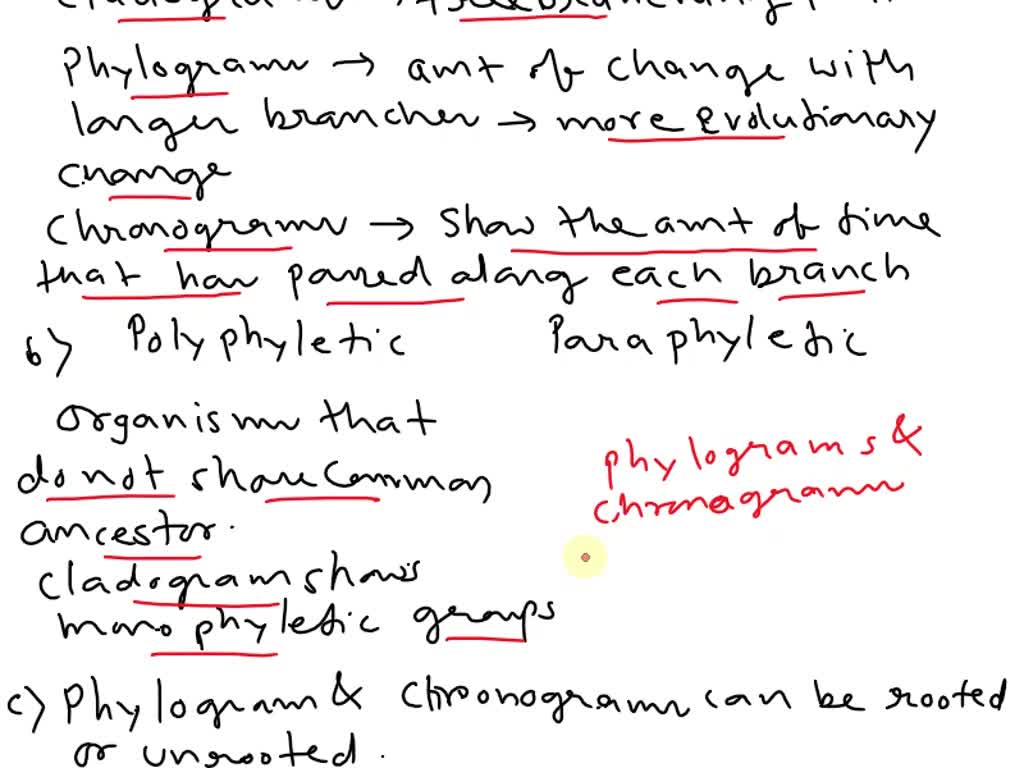 Phylogram → amt of change with
longer branches → more evolutionary
change
Chronogram → Show the amt of time
that has passed along each branch
b) Polyphyletic Paraphyletic
organism that
do not share common
ancestor.
cladogram shows
monophyletic groups
phylograms &
chronogram
c) Phylogram & Chronogram can be rooted
or unrooted.